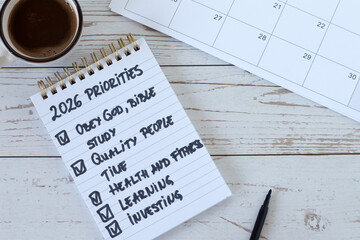 2026 PRIORITIES
OBEY GOD, BIBLE
STUDY
QUALITY PEOPLE
TIME
HEALTH AND FITNESS
LEARNING
INVESTING
20
21
22
23
27
28
29
30